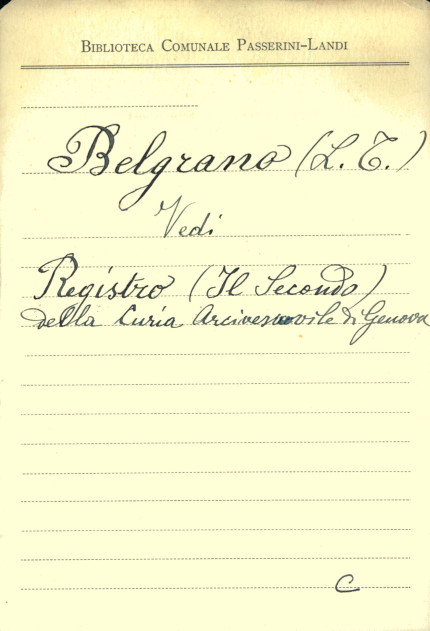 Biblioteca Comunale Passerini-Landi
Belgrano (L. T.)
Vedi
Registro (Il Secondo)
della Curia Arcivescovile di Genova
C